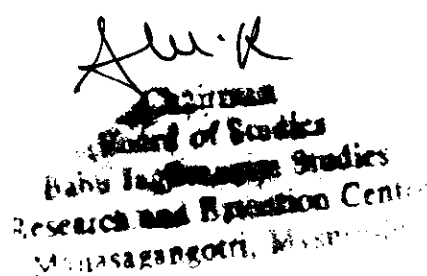 Chairman
Board of Studies
Babu Studies
Research and Extension Cent
Manasagangotri,